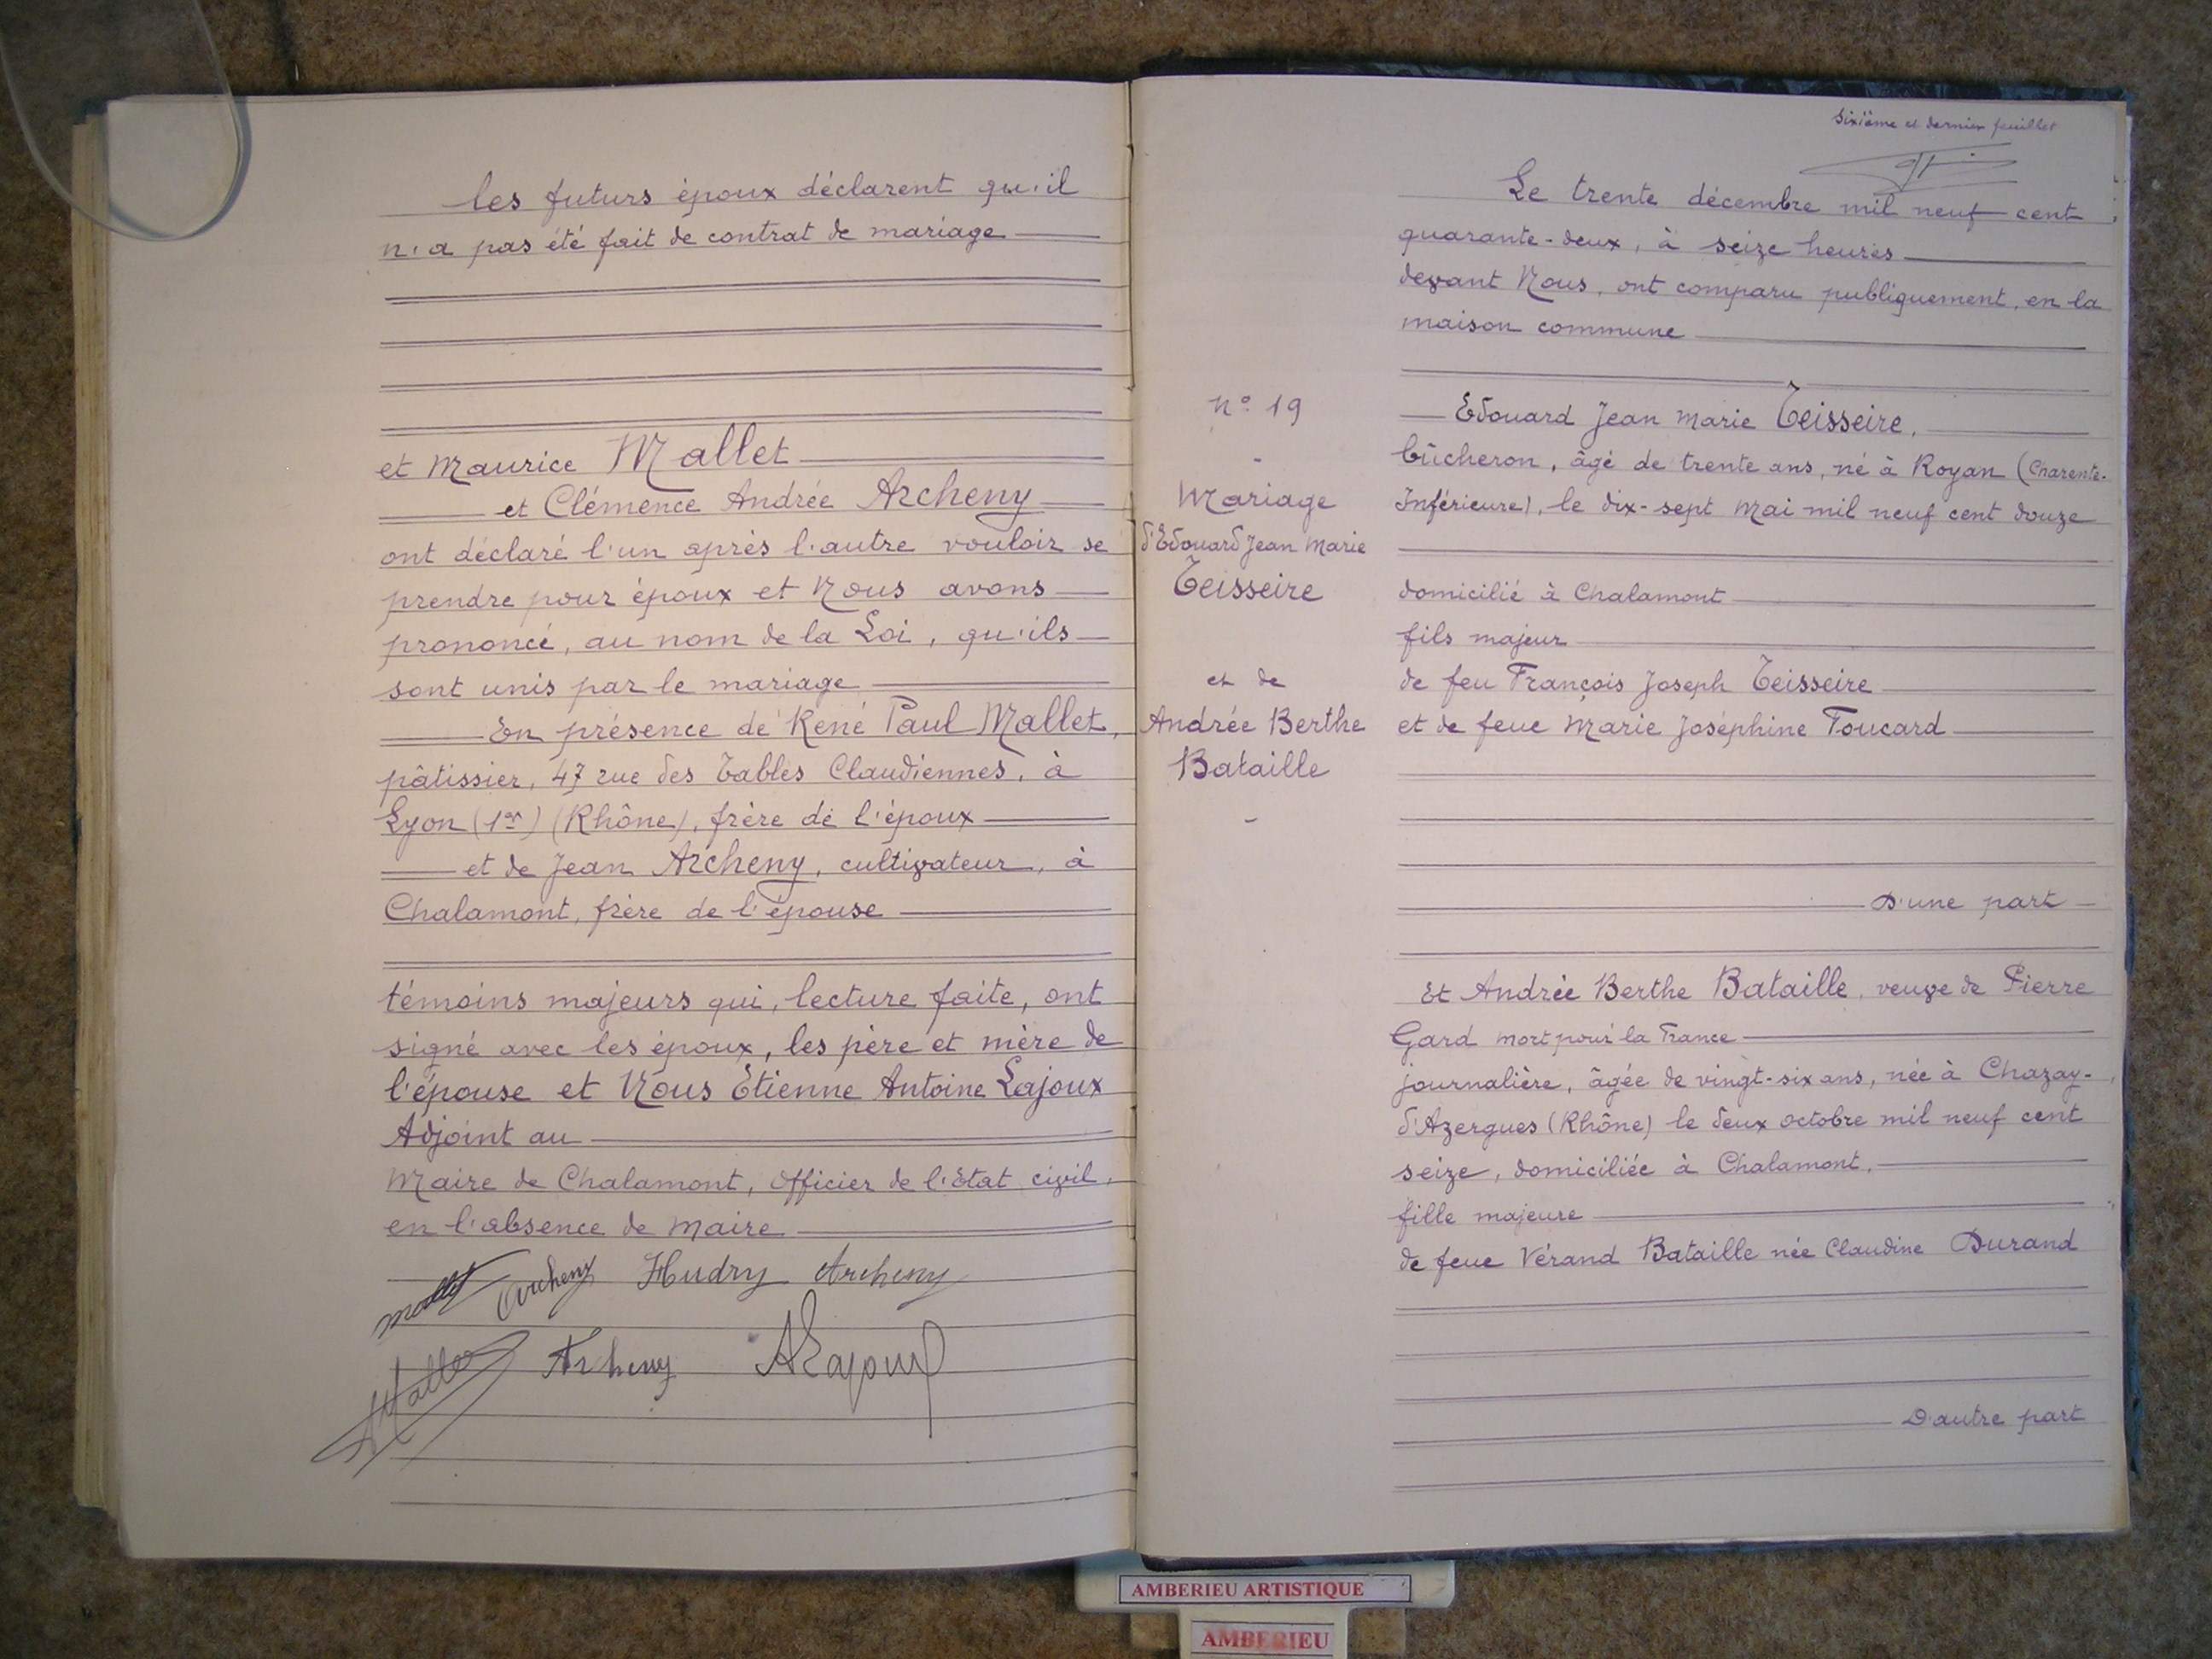 les futurs époux déclarent qu'il
n'a pas été fait de contrat de mariage
et Maurice Mallet
et Clémence Andrée Archeny
ont déclaré l'un après l'autre vouloir se
prendre pour époux et Nous avons
prononcé, au nom de la Loi, qu'ils
sont unis par le mariage
En présence de René Paul Mallet,
pâtissier, 47 rue des Tables Claudiennes, à
Lyon (1er) (Rhône), frère de l'époux
et de Jean Archeny, cultivateur, à
Chalamont, frère de l'épouse
témoins majeurs qui, lecture faite, ont
signé avec les époux, les père et mère de
l'épouse et Nous Étienne Antoine Lajoux
Adjoint au
Maire de Chalamont, Officier de l'Etat civil,
en l'absence de Maire
Mallet Archeny Hudry Archeny
Mallet Archeny ALajoux
Sixième et dernier feuillet
Le trente décembre mil neuf cent
quarante-deux, à seize heures
devant Nous, ont comparu publiquement, en la
maison commune
N° 19
-
Mariage
d'Edouard Jean Marie
Teisseire
et de
Andrée Berthe
Bataille
-
Edouard Jean Marie Teisseire,
bûcheron, âgé de trente ans, né à Royan (Charente-
Inférieure), le dix-sept Mai mil neuf cent douze
domicilié à Chalamont
fils majeur
de feu François Joseph Teisseire
et de feue Marie Joséphine Foucard
D'une part
Et Andrée Berthe Bataille, veuve de Pierre
Gard mort pour la France
journalière, âgée de vingt-six ans, née à Chazay-
d'Azergues (Rhône) le deux octobre mil neuf cent
seize, domiciliée à Chalamont,
fille majeure
de feue Vérand Bataille née Claudine Durand
D'autre part
AMBERIEU ARTISTIQUE
AMBERIEU